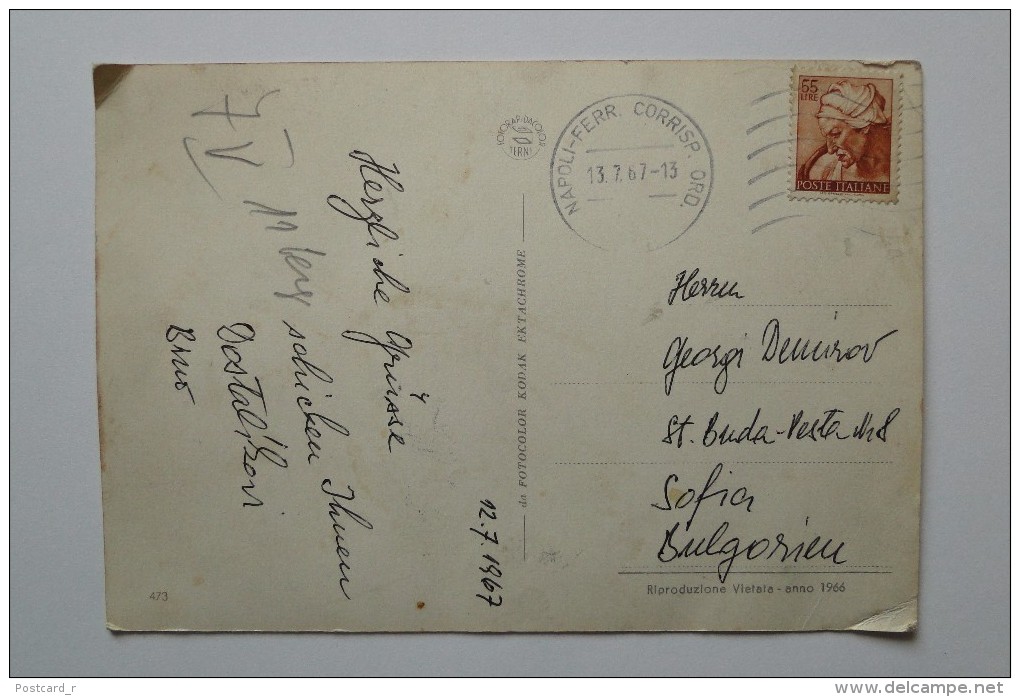 12.7.1967
Herzliche Grüsse
schicken Ihnen
Dostálíkovi
Brno
FOTORAPIDACOLOR
TERNI
da FOTOCOLOR KODAK EKTACHROME
NAPOLI-FERR. CORRISP. ORD.
13.7.67-13
55
LIRE
POSTE ITALIANE
Herrn
Georgi Demirov
St. Buda-Pesta № 8
Sofia
Bulgarien
Riproduzione Vietata - anno 1966
473
Postcard_r
www.delcampe.net